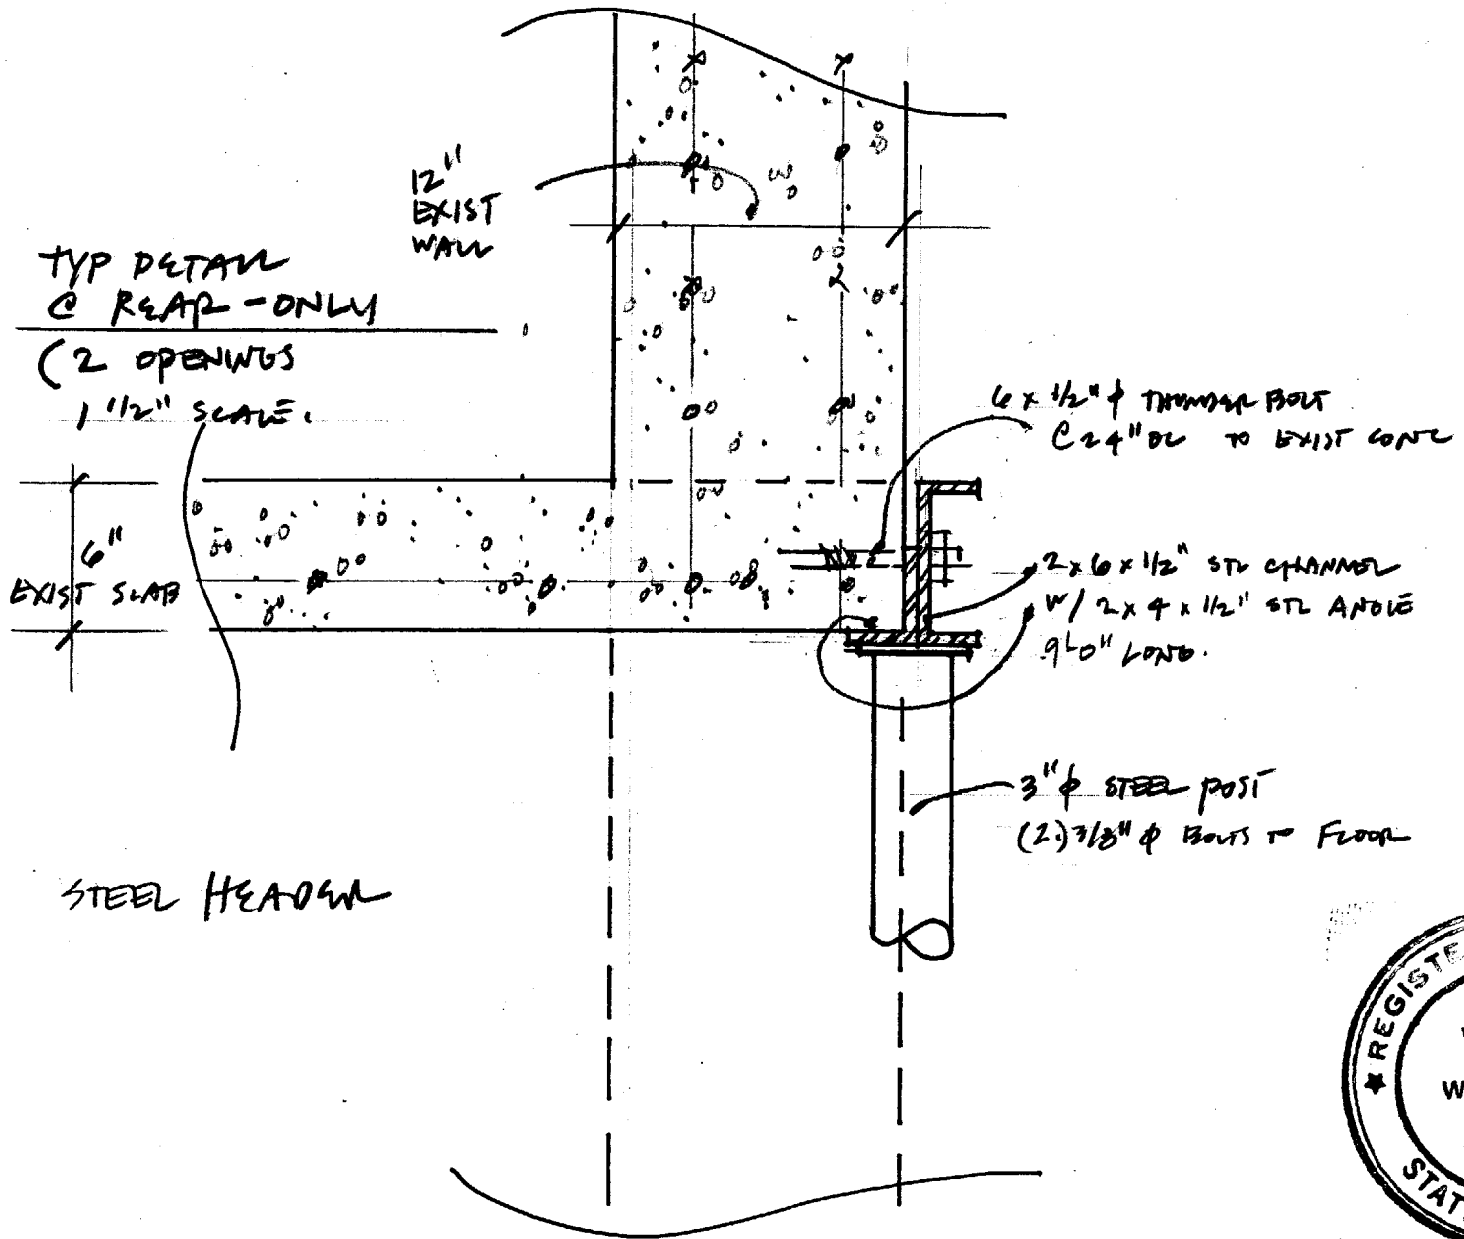 12"
EXIST
WALL
TYP DETAIL
@ REAR - ONLY
(2 OPENINGS
1 1/2" SCALE.
6 x 1/2" ϕ THUNDER BOLT
@ 24" OC TO EXIST CONC
6"
EXIST SLAB
2 x 6 x 1/2" STL CHANNEL
W/ 2 x 4 x 1/2" STL ANGLE
9'-0" LONG.
3" ϕ STEEL POST
(2) 3/8" ϕ BOLTS TO FLOOR
STEEL HEADER
★ REGISTE
W
STAT